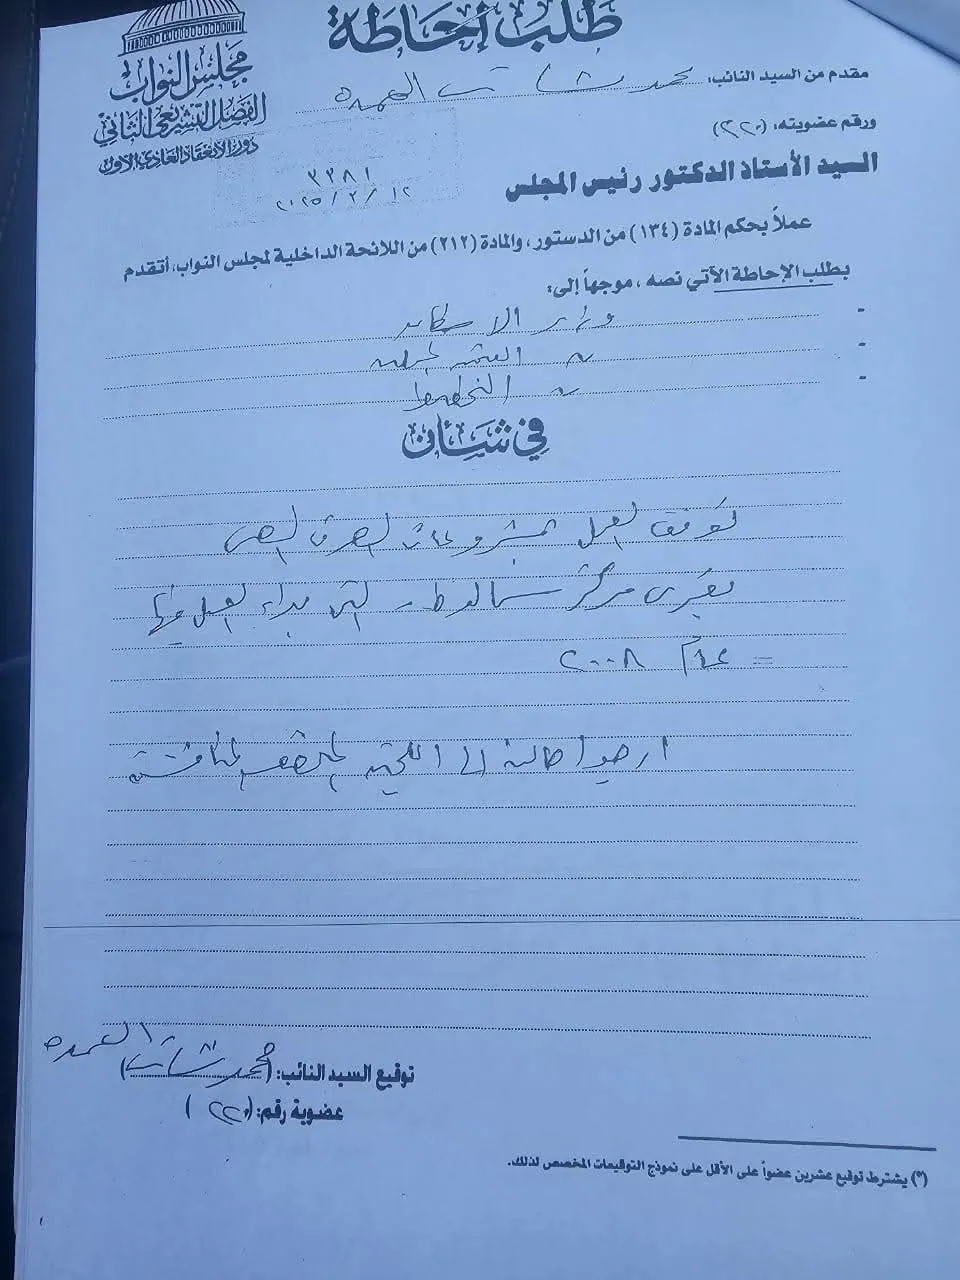 مجلس النواب
الفصل التشريعي الثاني
دور الانعقاد العادي الأول
طلب إحاطة
مقدم من السيد النائب: محمد نشأت العمده
ورقم عضويته: (٢٢٠)
٣٢٨١
٢٠٢٥/٢/١٢
السيد الأستاذ الدكتور رئيس المجلس
عملاً بحكم المادة (١٣٤) من الدستور، والمادة (٢١٢) من اللائحة الداخلية لمجلس النواب، أتقدم
بطلب الإحاطة الآتي نصه، موجهاً إلى:
- وزير الاسكان
- التنمية المحلية
- التخطيط
في شأن
توقف العمل بمشروعات الصرف الصحى
بقرى مركز التى بداء العمل فيها
= عام ٢٠٠٨
ارجو احالته الى اللجنة المختصه لمناقشته
توقيع السيد النائب: (محمد نشأت العمده)
عضوية رقم: (٢٢٠)
(*) يشترط توقيع عشرين عضواً على الأقل على نموذج التوقيعات المخصص لذلك.